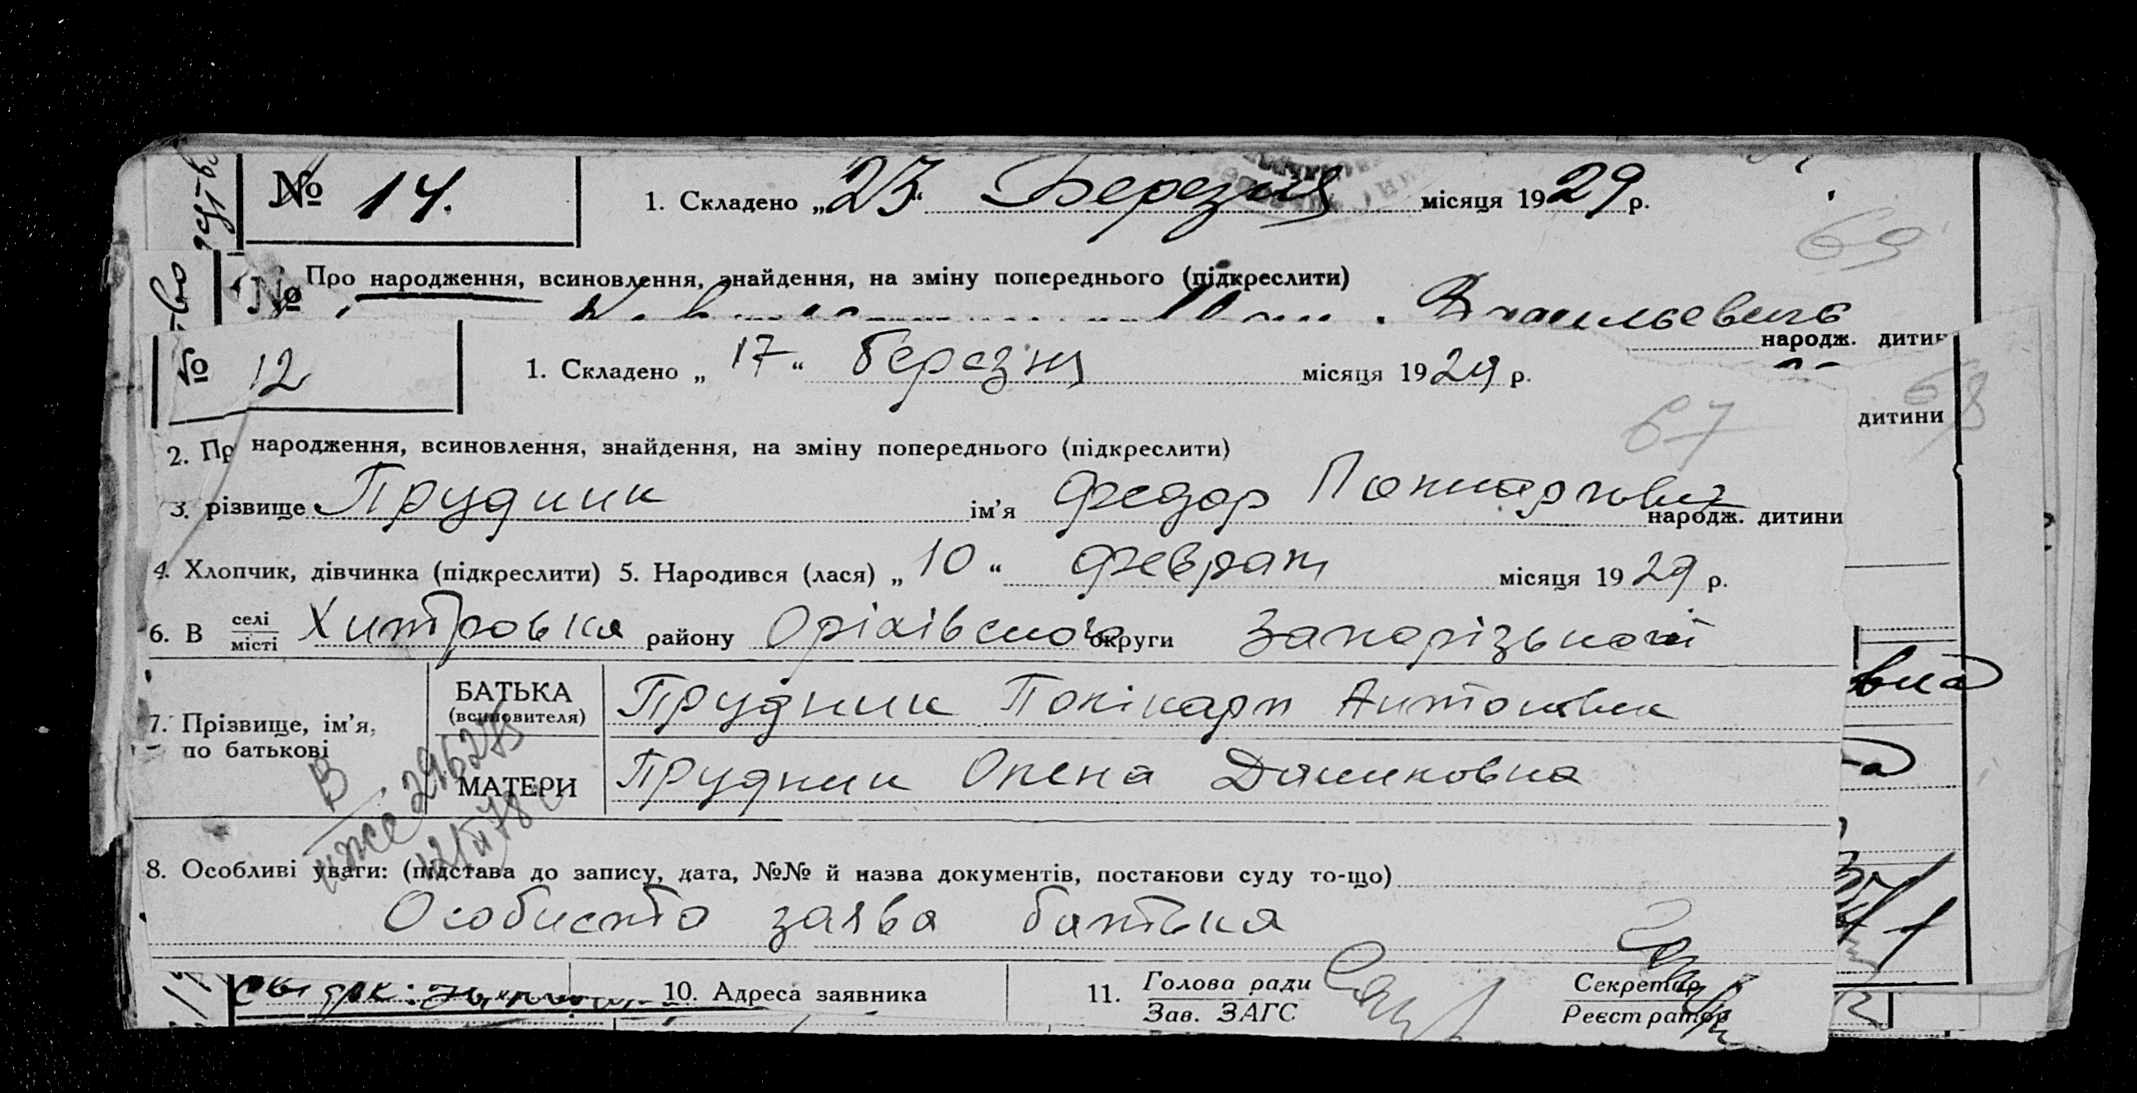 № 14. 1. Складено „23“ Березня місяця 1929 р.
69
№ Про народження, всиновлення, знайдення, на зміну попереднього (підкреслити)
Васильевич
народж. дитин
№ 12 1. Складено „17“ березня місяця 1929 р.
68
67
дитини
2. Пр народження, всиновлення, знайдення, на зміну попереднього (підкреслити)
3. різвище Прудник ім'я Федор Полікарпович народж. дитини
4. Хлопчик, дівчинка (підкреслити) 5. Народився (лася) „10“ феврал місяця 1929 р.
6. В селі місті Хитровка району Оріхівського округи Запорізької
7. Прізвище, ім'я, по батькові
БАТЬКА (всиновителя) Прудник Полікарп Антонович
МАТЕРИ Прудник Олена Демковна
8. Особливі уваги: (підстава до запису, дата, №№ й назва документів, постанови суду то-що)
Особисто заява батька
10. Адреса заявника 11. Голова ради Зав. ЗАГС Секретар Реєстратор